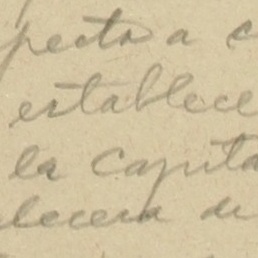 pecto a c
establece
la capita
lecera de